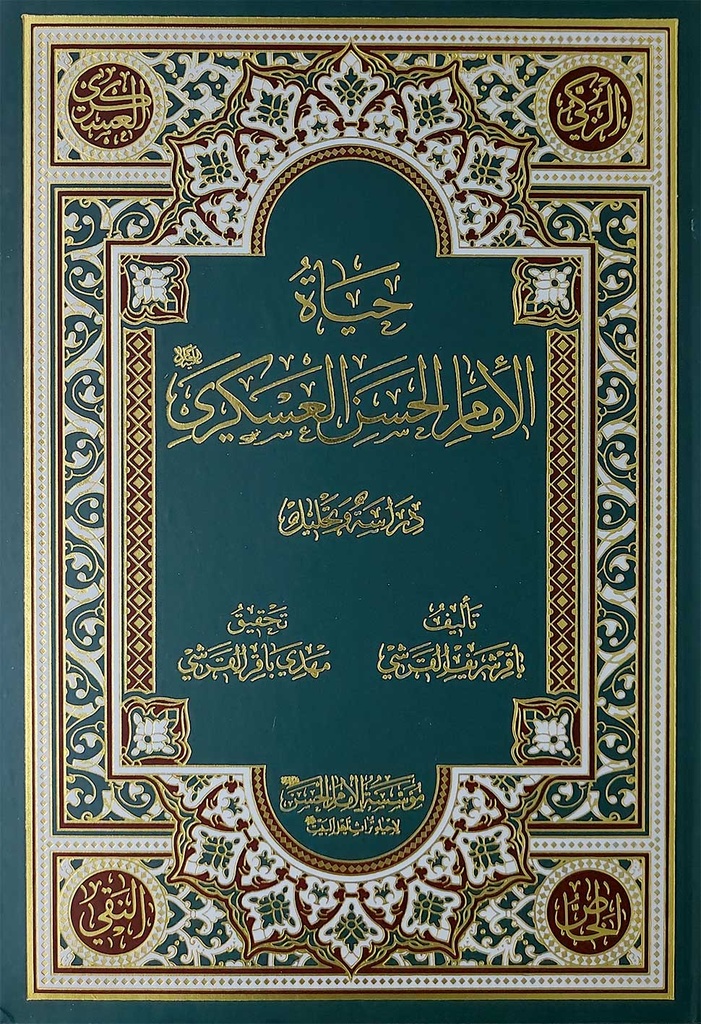 الزكي
العسكري
حياة
الإمام الحسن العسكري عليه السلام
دراسة وتحليل
تأليف
باقر شريف القرشي
تحقيق
مهدي باقر القرشي
مؤسسة الإمام الحسن
لإحياء تراث أهل البيت
النقي